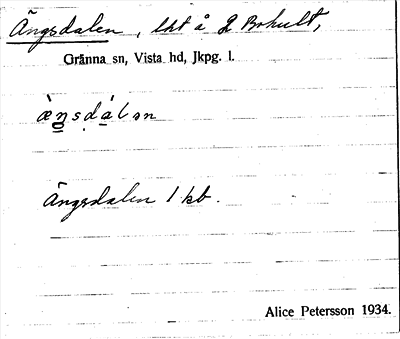 Ängsdalen, lkt å 2 Bohult,
Gränna sn, Vista hd, Jkpg. l.
æ̀ŋsdálən
Ängsdalen 1 kb.
Alice Petersson 1934.